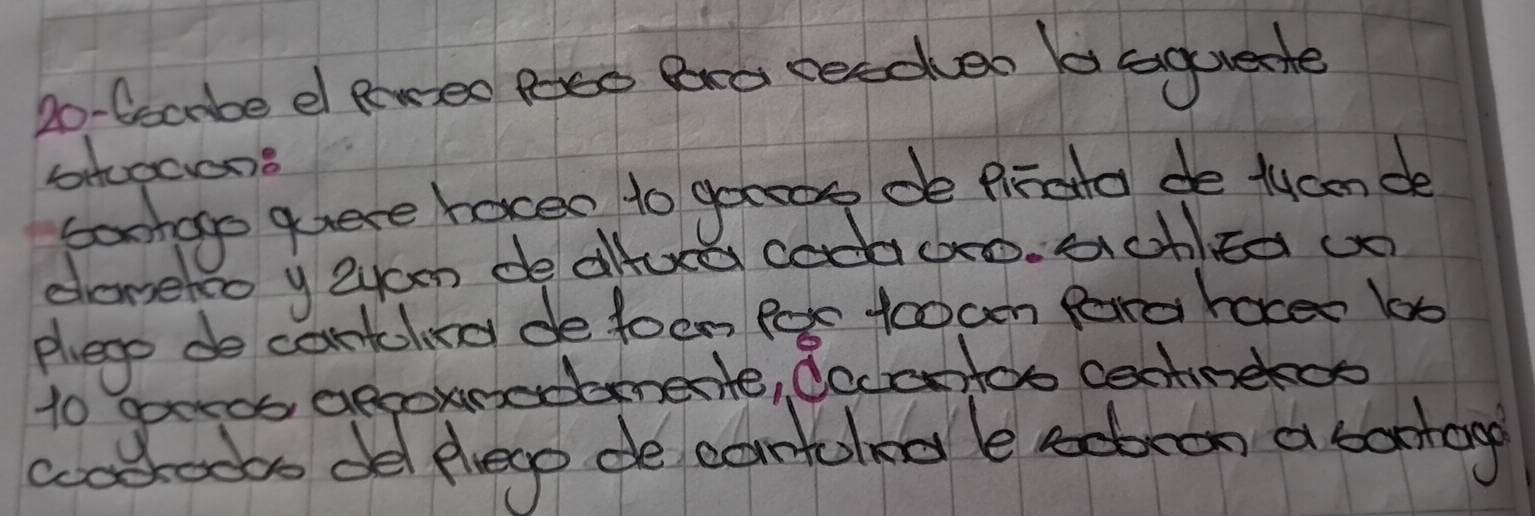 20-Escribe el Primer Paso Para resolver la siguiente
situacion:
-santiago quiere hacer 10 gorros de Piñata de 14cm de
diametro y 24cm de altura cada uno. si utiliza un
pliego de cartulina de 70cm Por 100cm Para hacer los
10 gorros aproximadamente, ¿cuantos centimetros
cuadrados del pliego de cartulina le sobran a santiago?